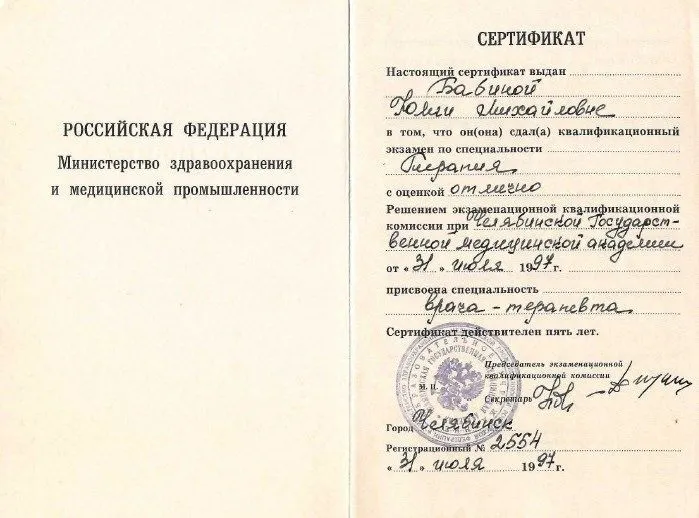 РОССИЙСКАЯ ФЕДЕРАЦИЯ
Министерство здравоохранения
и медицинской промышленности
СЕРТИФИКАТ
Настоящий сертификат выдан
Бабиной
Михайловне
в том, что он(она) сдал(а) квалификационный
экзамен по специальности
Терапия
с оценкой отлично
Решением экзаменационной квалификационной
комиссии при Челябинской Государст-
венной медицинской академии
от « 31 » июля 1997 г.
присвоена специальность
врача - терапевта
Сертификат действителен пять лет.
Председатель экзаменационной
квалификационной комиссии
М. П.
Секретарь
Город Челябинск
Регистрационный № 2554
« 31 » июля 1997 г.